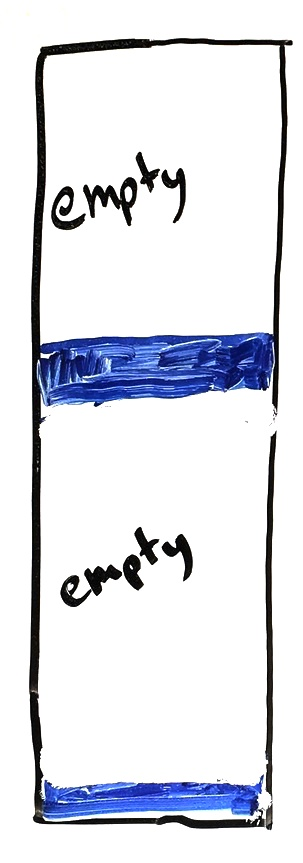 empty
empty